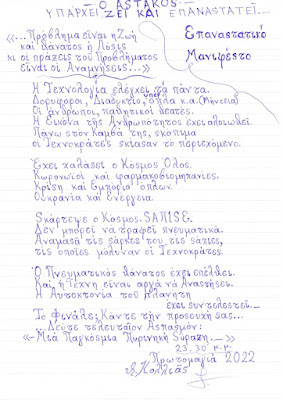 — Ο ASTAKOS —
ΥΠΑΡΧΕΙ ΖΕΙ ΚΑΙ ΕΠΑΝΑΣΤΑΤΕΙ
«...Πρόβλημα είναι η Ζωή
και θάνατος ή Λύσις
κι οι πράξεις του Προβλήματος
είναι οι Αναμνήσεις...»
Επαναστατικό
Μανιφέστο
Η Τεχνολογία ελέγχει τα πάντα.
Δορυφόροι, Διαδίκτυο, υπερόπλα κ.α.
Οι άνθρωποι, παθητικοί θεατές.
Η Εικόνα της Ανθρωπότητος έχει αλοιωθεί.
Πάνω στον Καμβά της, σκόπιμα
οι Τεχνοκράτες σκίασαν το περιεχόμενο.
Έχει χαλάσει ο Κόσμος Όλος.
Κορωνοϊοί και φαρμακοβιομηχανίες.
Κρίση και Εμπόριο όπλων.
Ουκρανία και Ενέργεια.
Σκάρτεψε ο Κόσμος. ΣΑΠΙΣΕ.
Δεν μπορεί να τραφεί πνευματικά.
Ανάμεσα τις σάρκες του τις σάπιες,
τις οποίες μόλυναν οι Τεχνοκράτες.
Ο Πνευματικός θάνατος έχει επέλθει.
Και, η Τέχνη είναι αργά να Αναστήσει.
Η Αυτοκτονία του πλανήτη
έχει συντελεστεί.—
Το Φινάλε; Κάντε την προσευχή σας...
...Δεύτε τελευταίον Ασπασμόν:
«-Μιά Παγκόσμια Πυρηνική Σύρραξη.—»
23.30' μ.μ.
Πρωτομαγιά 2022
Καλλιάς